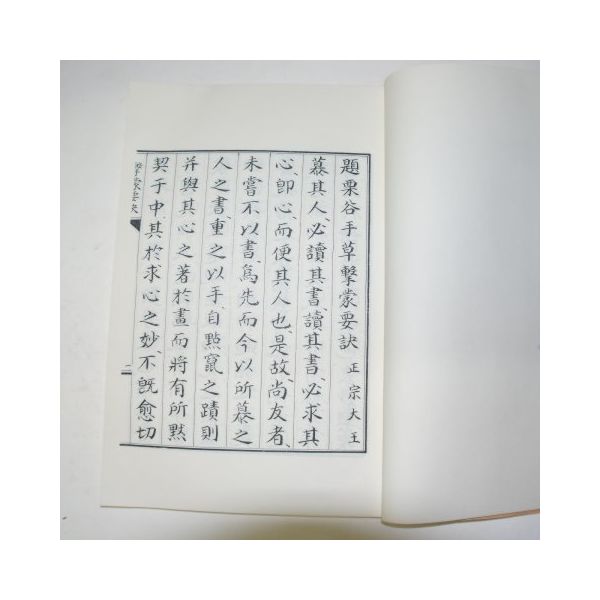 題栗谷手草擊蒙要訣 正宗大王
慕其人必讀其書讀其書必求其
心卽心而便其人也是故尚友者
未嘗不以書爲先而今以所慕之
人之書重之以手自點竄之蹟則
并與其心之著於畫而將有所默
契于中其於求心之妙不旣愈切
擊蒙要訣